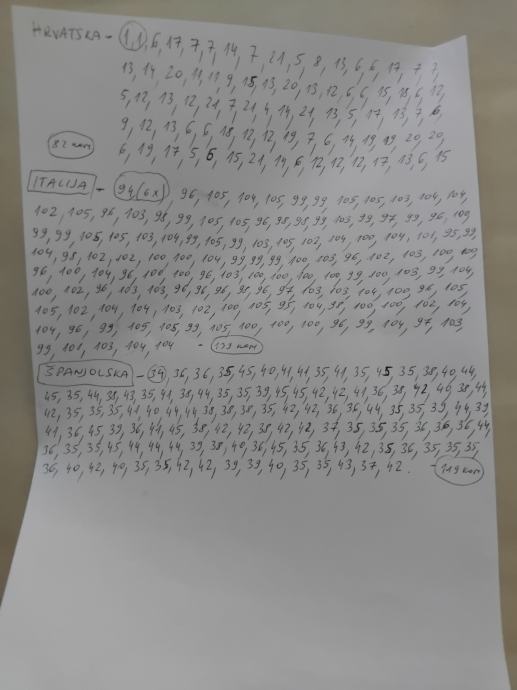 HRVATSKA - 1,1,6,17,7,7,14,7,21,5,8,13,6,6,17,7,7,
13,14,20,11,11,9,18,13,20,13,12,6,6,15,18,6,12,
5,12,13,12,21,7,21,4,14,21,13,5,17,13,7,6,
9,12,13,6,6,18,12,12,19,7,6,14,19,19,20,20,
82 kom
6,19,17,5,6,15,21,14,6,12,12,12,17,13,6,15
ITALIJA - 94(6x), 96,105,104,105,99,99,105,105,103,104,104,
102,105,96,103,98,99,105,105,96,98,98,99,103,99,97,99,96,100,
99,99,105,105,103,104,99,105,99,103,105,102,104,100,104,101,95,99,
104,98,102,102,100,100,104,99,99,99,100,103,96,102,103,100,100,
96,100,104,96,100,100,96,103,100,100,100,100,99,100,103,99,104,
100,102,96,103,103,96,96,96,98,96,97,103,103,104,100,96,105,
105,102,104,104,103,102,100,105,95,104,98,100,100,102,104,
104,96,99,105,105,99,105,100,100,100,96,99,104,97,103,
99,101,103,104,104 - 139 kom
ŠPANJOLSKA - 34,36,36,35,45,40,41,41,35,41,35,45,35,38,40,44,
45,35,44,38,43,35,41,38,44,35,35,39,45,45,42,42,41,36,38,42,40,38,44,
42,35,35,35,41,40,44,44,38,38,38,35,42,42,36,36,44,35,35,39,44,39
41,36,45,39,36,41,45,38,42,42,38,42,42,37,35,35,35,36,36,36,44,
36,35,35,45,44,44,44,39,38,40,36,45,35,36,43,42,35,36,35,35,35,
36,40,42,40,35,35,42,42,39,39,40,35,35,43,37,42. - 119 kom